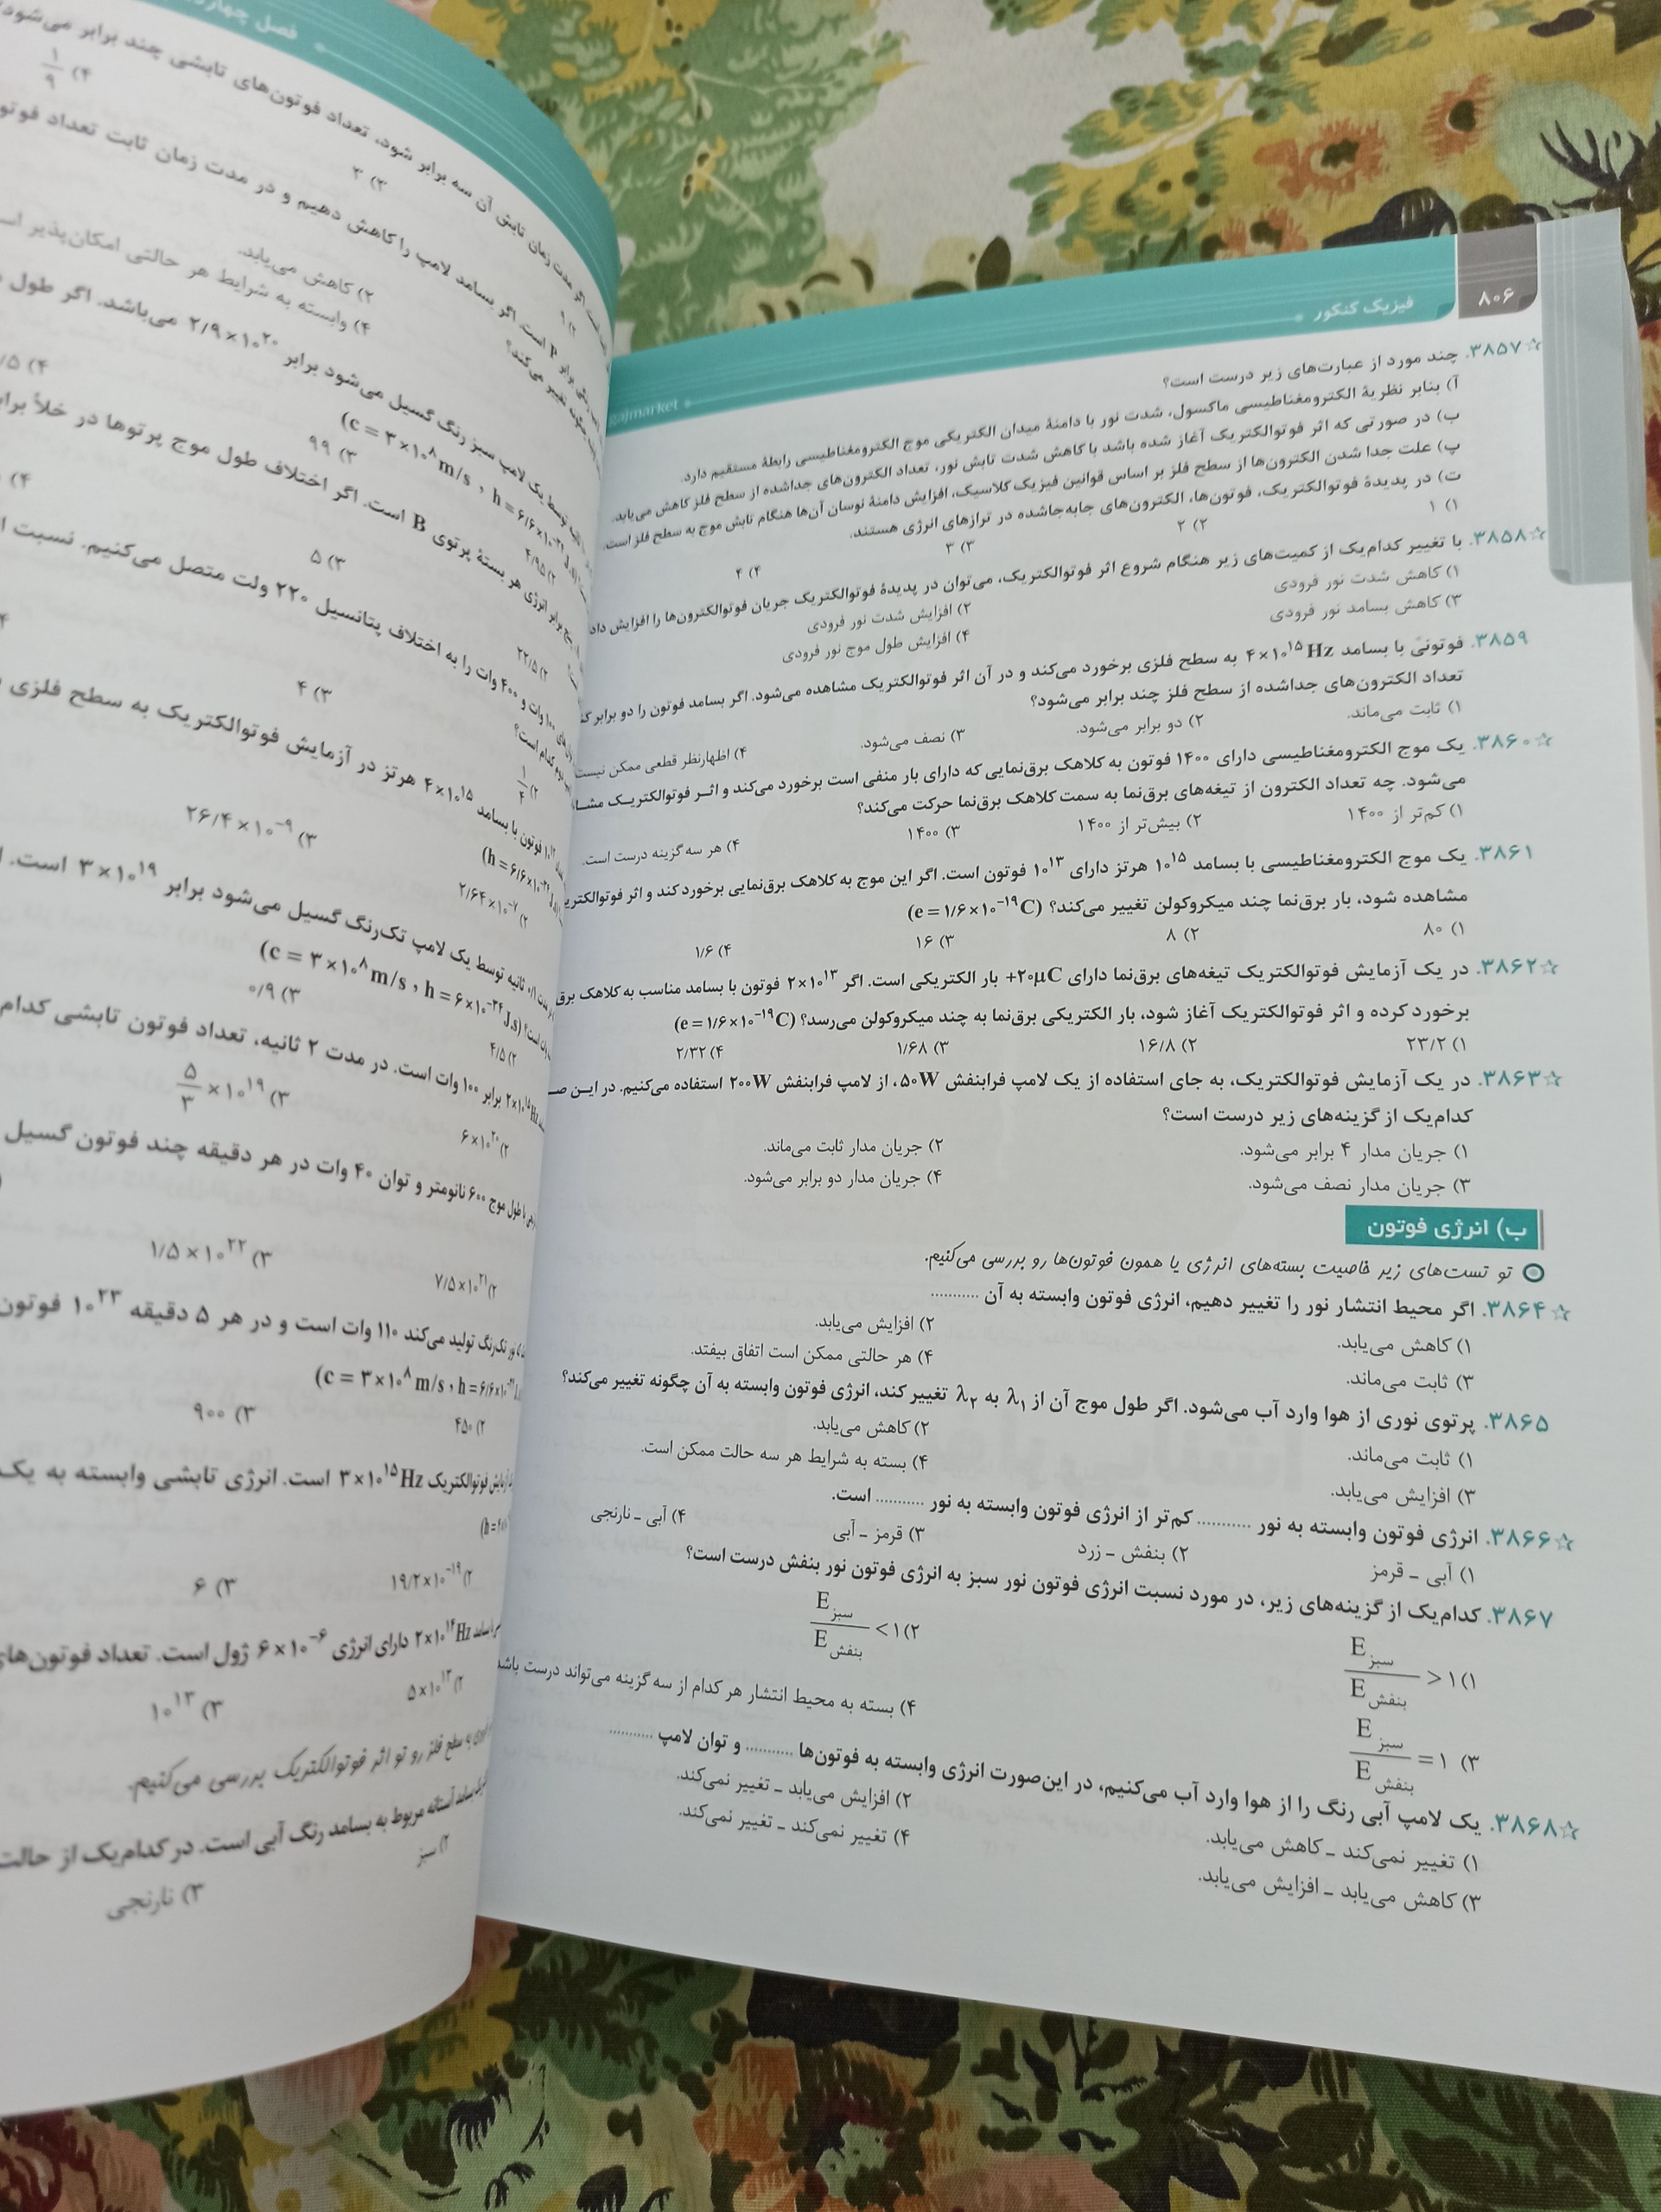 ۸۰۶
فیزیک کنکور
gajmarket
☆۳۸۵۷. چند مورد از عبارت‌های زیر درست است؟
آ) بنابر نظریهٔ الکترومغناطیسی ماکسول، شدت نور با دامنهٔ میدان الکتریکی موج الکترومغناطیسی رابطهٔ مستقیم دارد.
ب) در صورتی که اثر فوتوالکتریک آغاز شده باشد با کاهش شدت تابش نور، تعداد الکترون‌های جداشده از سطح فلز کاهش می‌یابد.
پ) علت جدا شدن الکترون‌ها از سطح فلز بر اساس قوانین فیزیک کلاسیک، افزایش دامنهٔ نوسان آن‌ها هنگام تابش موج به سطح فلز است.
ت) در پدیدهٔ فوتوالکتریک، فوتون‌ها، الکترون‌های جابه‌جاشده در ترازهای انرژی هستند.
۱) ۱ ۲) ۲ ۳) ۳ ۴) ۴
☆۳۸۵۸. با تغییر کدام‌یک از کمیت‌های زیر هنگام شروع اثر فوتوالکتریک، می‌توان در پدیدهٔ فوتوالکتریک جریان فوتوالکترون‌ها را افزایش داد
۱) کاهش شدت نور فرودی ۲) افزایش شدت نور فرودی
۳) کاهش بسامد نور فرودی ۴) افزایش طول موج نور فرودی
۳۸۵۹. فوتونی با بسامد ۴×۱۰^۱۵ Hz به سطح فلزی برخورد می‌کند و در آن اثر فوتوالکتریک مشاهده می‌شود. اگر بسامد فوتون را دو برابر
تعداد الکترون‌های جداشده از سطح فلز چند برابر می‌شود؟
۱) ثابت می‌ماند. ۲) دو برابر می‌شود. ۳) نصف می‌شود. ۴) اظهارنظر قطعی ممکن نیست
☆۳۸۶۰. یک موج الکترومغناطیسی دارای ۱۴۰۰ فوتون به کلاهک برق‌نمایی که دارای بار منفی است برخورد می‌کند و اثر فوتوالکتریک
می‌شود. چه تعداد الکترون از تیغه‌های برق‌نما به سمت کلاهک برق‌نما حرکت می‌کند؟
۱) کم‌تر از ۱۴۰۰ ۲) بیش‌تر از ۱۴۰۰ ۳) ۱۴۰۰ ۴) هر سه گزینه درست است.
۳۸۶۱. یک موج الکترومغناطیسی با بسامد ۱۰^۱۵ هرتز دارای ۱۰^۱۳ فوتون است. اگر این موج به کلاهک برق‌نمایی برخورد کند و اثر
مشاهده شود، بار برق‌نما چند میکروکولن تغییر می‌کند؟ (e = ۱/۶×۱۰^−۱۹ C)
۱) ۸۰ ۲) ۸ ۳) ۱۶ ۴) ۱/۶
☆۳۸۶۲. در یک آزمایش فوتوالکتریک تیغه‌های برق‌نما دارای +۲۰μC بار الکتریکی است. اگر ۲×۱۰^۱۳ فوتون با بسامد مناسب به کلاهک
برخورد کرده و اثر فوتوالکتریک آغاز شود، بار الکتریکی برق‌نما به چند میکروکولن می‌رسد؟ (e = ۱/۶×۱۰^−۱۹ C)
۱) ۲۳/۲ ۲) ۱۶/۸ ۳) ۱/۶۸ ۴) ۲/۳۲
☆۳۸۶۳. در یک آزمایش فوتوالکتریک، به جای استفاده از یک لامپ فرابنفش ۵۰W، از لامپ فرابنفش ۲۰۰W استفاده می‌کنیم. در این
کدام‌یک از گزینه‌های زیر درست است؟
۱) جریان مدار ۴ برابر می‌شود. ۲) جریان مدار ثابت می‌ماند.
۳) جریان مدار نصف می‌شود. ۴) جریان مدار دو برابر می‌شود.
ب) انرژی فوتون
تو تست‌های زیر خاصیت بسته‌های انرژی یا همون فوتون‌ها رو بررسی می‌کنیم.
☆۳۸۶۴. اگر محیط انتشار نور را تغییر دهیم، انرژی فوتون وابسته به آن ...........
۱) کاهش می‌یابد. ۲) افزایش می‌یابد.
۳) ثابت می‌ماند. ۴) هر حالتی ممکن است اتفاق بیفتد.
۳۸۶۵. پرتوی نوری از هوا وارد آب می‌شود. اگر طول موج آن از λ۱ به λ۲ تغییر کند، انرژی فوتون وابسته به آن چگونه تغییر می‌کند؟
۱) ثابت می‌ماند. ۲) کاهش می‌یابد.
۳) افزایش می‌یابد. ۴) بسته به شرایط هر سه حالت ممکن است.
☆۳۸۶۶. انرژی فوتون وابسته به نور ........... کم‌تر از انرژی فوتون وابسته به نور ........... است.
۱) آبی ـ قرمز ۲) بنفش ـ زرد ۳) قرمز ـ آبی ۴) آبی ـ نارنجی
۳۸۶۷. کدام‌یک از گزینه‌های زیر، در مورد نسبت انرژی فوتون نور سبز به انرژی فوتون نور بنفش درست است؟
۱) E سبز / E بنفش > ۱ ۲) E سبز / E بنفش < ۱
۳) E سبز / E بنفش = ۱ ۴) بسته به محیط انتشار هر کدام از سه گزینه می‌تواند درست باشد
☆۳۸۶۸. یک لامپ آبی رنگ را از هوا وارد آب می‌کنیم، در این‌صورت انرژی وابسته به فوتون‌ها ........... و توان لامپ ...........
۱) تغییر نمی‌کند ـ کاهش می‌یابد. ۲) افزایش می‌یابد ـ تغییر نمی‌کند.
۳) کاهش می‌یابد ـ افزایش می‌یابد. ۴) تغییر نمی‌کند ـ تغییر نمی‌کند.
فصل
مدت زمان تابش آن سه برابر شود، تعداد فوتون‌های تابشی چند برابر می‌شود
۲) ۹ ۳) ۳ ۴) ۱/۹
است. اگر بسامد لامپ را کاهش دهیم و در مدت زمان ثابت تعداد
چگونه تغییر می‌کند؟
۲) کاهش می‌یابد.
۴) وابسته به شرایط هر حالتی امکان‌پذیر
توسط یک لامپ سبز رنگ گسیل می‌شود برابر ۲/۹×۱۰^۲۰ می‌باشد. اگر طول
(c = ۳×۱۰^۸ m/s ، h = ۶/۶×۱۰^−۳۴
۲) ۴/۹۵ ۳) ۹۹
برابر انرژی هر بستهٔ پرتوی B است. اگر اختلاف طول موج پرتوها در خلأ
۲) ۲۲/۵ ۳) ۵
۱۰۰ وات و ۴۰۰ وات را به اختلاف پتانسیل ۲۲۰ ولت متصل می‌کنیم. نسبت
کدام است؟
۳) ۴
فوتون با بسامد ۴×۱۰^۱۵ هرتز در آزمایش فوتوالکتریک به سطح فلزی
۲) ۲/۶۴×۱۰^−۷ ۳) ۲۶/۴×۱۰^−۹
ثانیه توسط یک لامپ تک‌رنگ گسیل می‌شود برابر ۳×۱۰^۱۹ است.
(c = ۳×۱۰^۸ m/s ، h = ۶×۱۰^−۳۴ J.s)
۲) ۴/۵ ۳) ۰/۹
برابر ۱۰۰ وات است. در مدت ۲ ثانیه، تعداد فوتون تابشی کدام
۲) ۶×۱۰^۲۰ ۳) ۵/۳ ×۱۰^۱۹
با طول موج ۶۰۰ نانومتر و توان ۴۰ وات در هر دقیقه چند فوتون گسیل
۲) ۷/۵×۱۰^۲۱ ۳) ۱/۵×۱۰^۲۲
نور تک‌رنگ تولید می‌کند ۱۱۰ وات است و در هر ۵ دقیقه ۱۰^۲۳ فوتون
۲) ۴۵۰ ۳) ۹۰۰
آزمایش فوتوالکتریک ۳×۱۰^۱۵ Hz است. انرژی تابشی وابسته به یک
۲) ۱۹/۲×۱۰^−۱۹ ۳) ۶
بسامد ۲×۱۰^۱۴ Hz دارای انرژی ۶×۱۰^−۶ ژول است. تعداد فوتون‌های
۲) ۵×۱۰^۱۳ ۳) ۱۰^۱۳
به سطح فلز رو تو اثر فوتوالکتریک بررسی می‌کنیم.
بسامد آستانه مربوط به بسامد رنگ آبی است. در کدام‌یک از
۲) سبز ۳) نارنجی